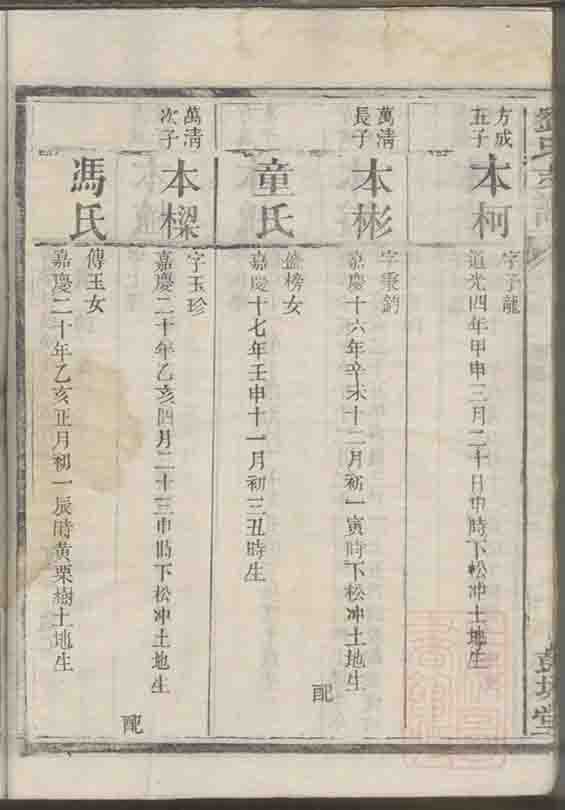 方成
五子
本柯
字子龍
道光四年甲申三月二十日申時下松冲土地生
萬清
長子
本彬
字秉鈞
嘉慶十六年辛未十二月初一寅時下松冲土地生
配
童氏
盛榜女
嘉慶十七年壬申十一月初三丑時生
萬清
次子
本樑
字玉珍
嘉慶二十年乙亥四月二十三申時下松冲土地生
配
馮氏
傳玉女
嘉慶二十年乙亥正月初一辰時黃栗樹土地生